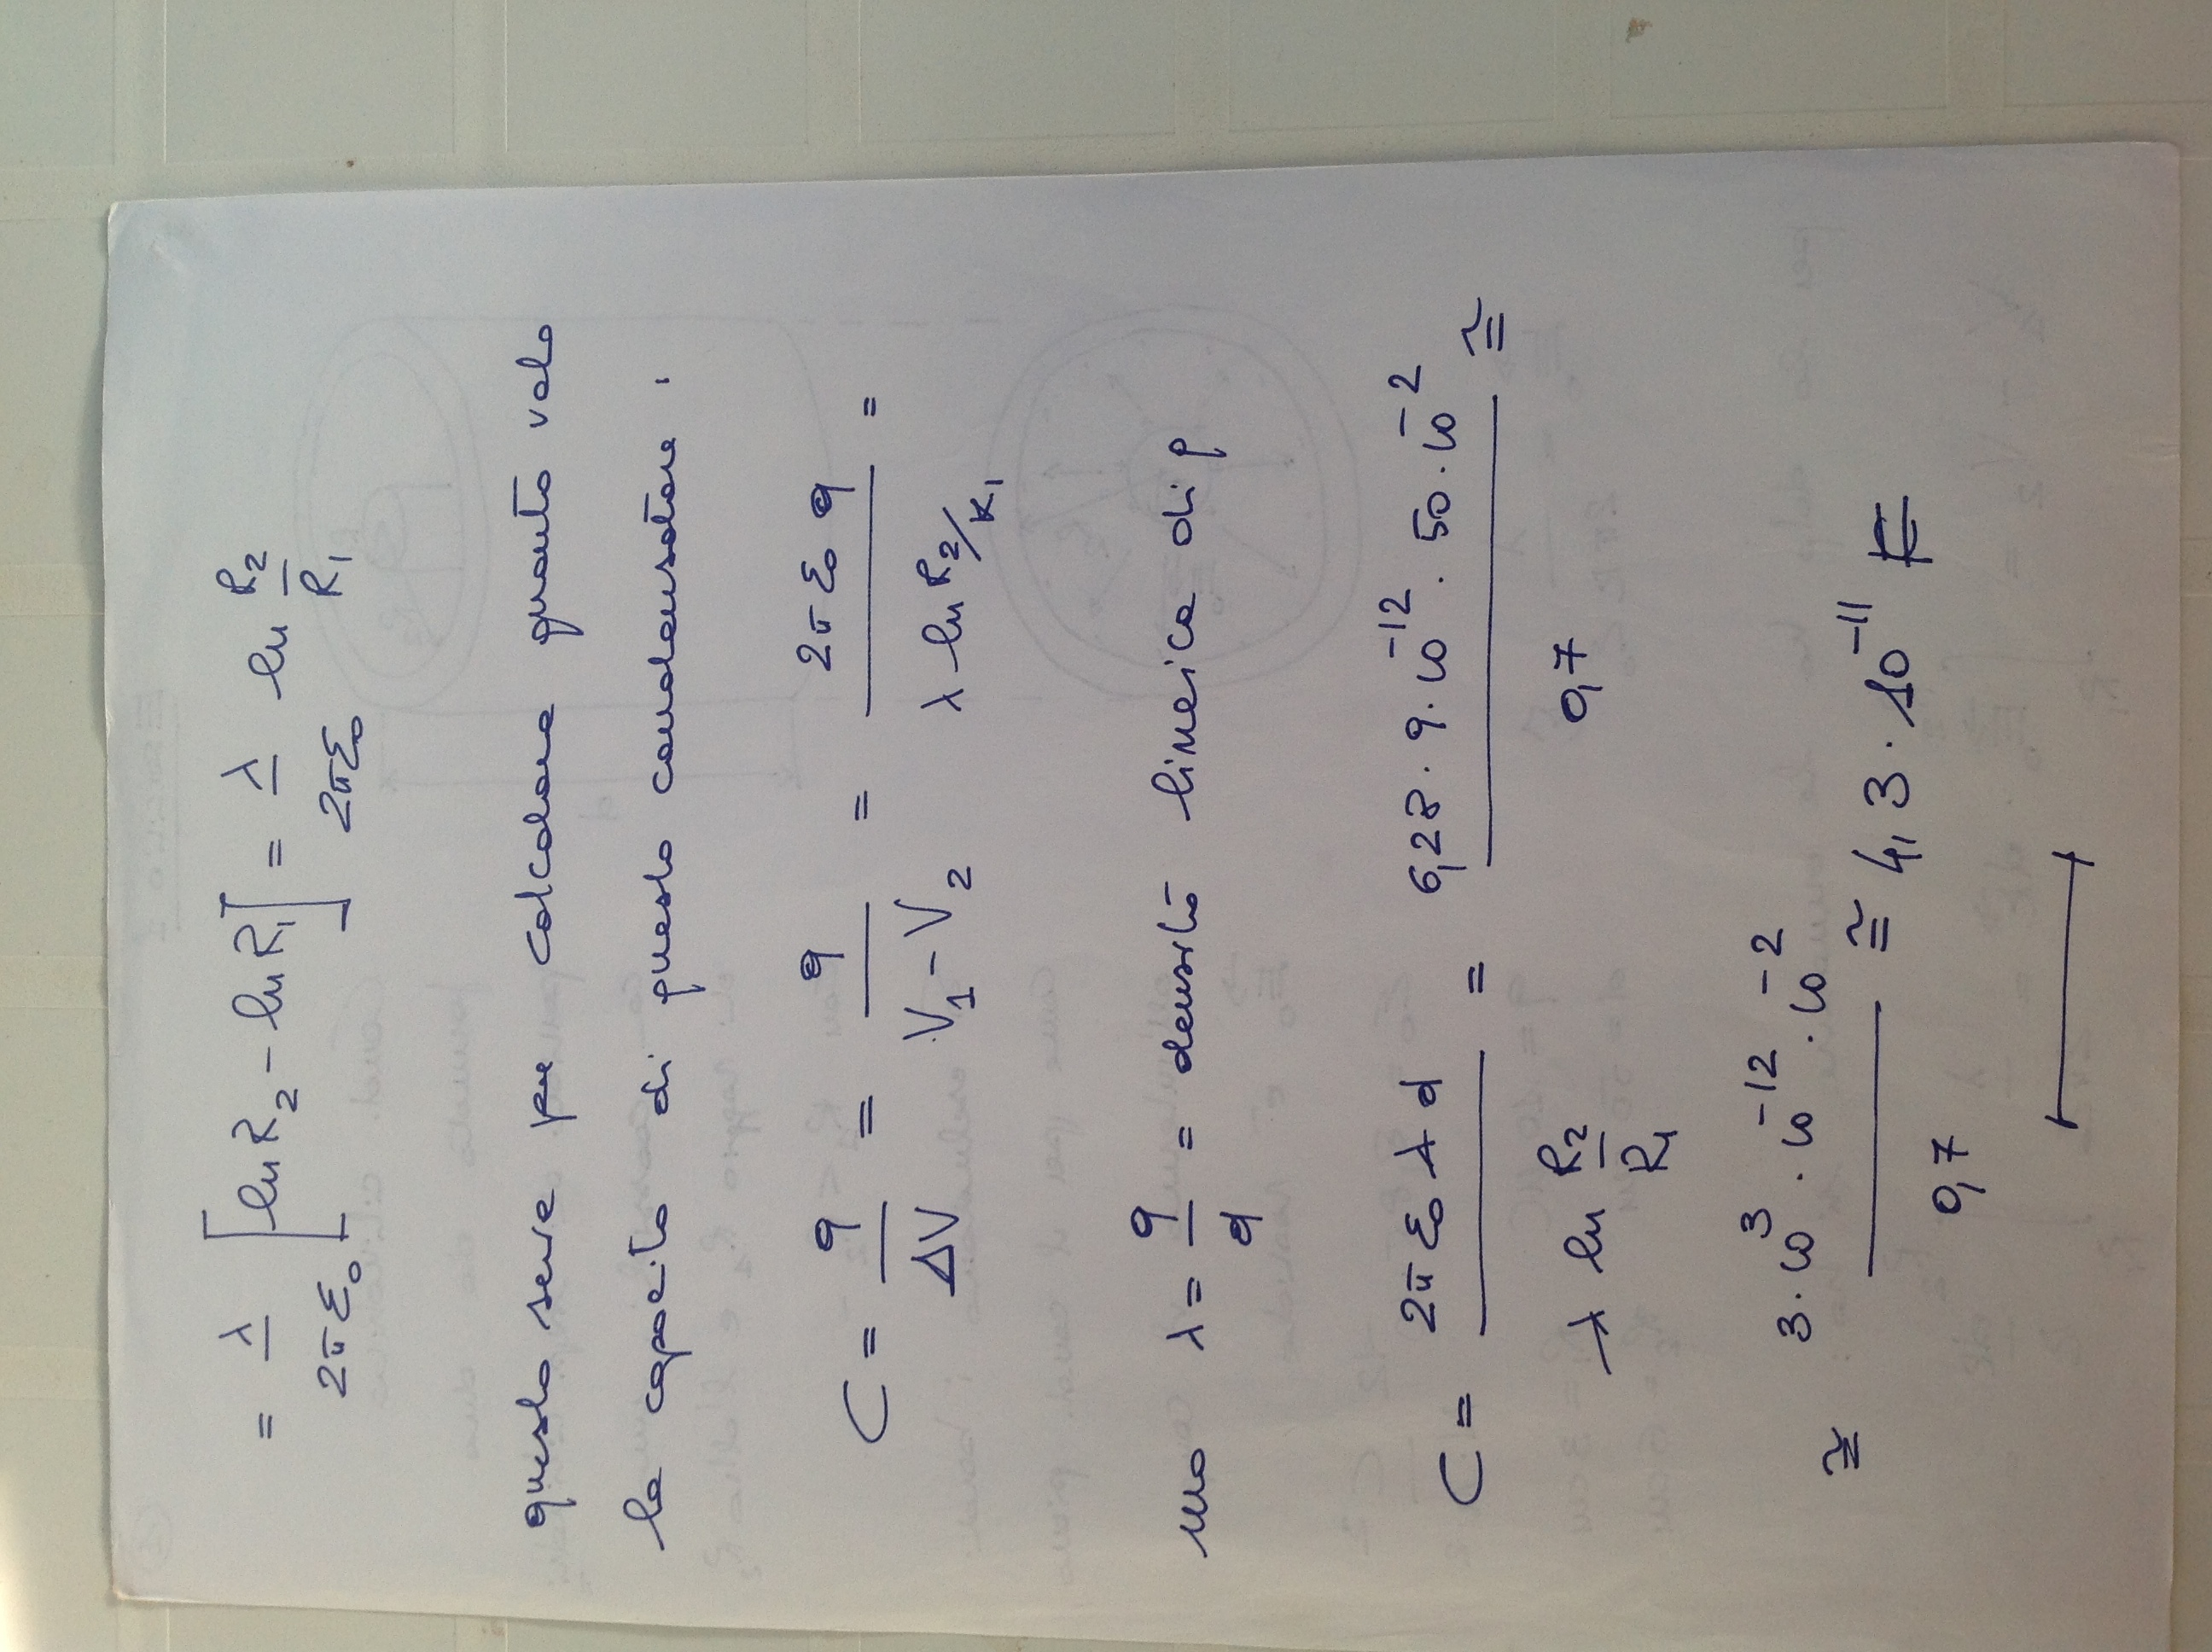 = λ/2πε₀ [ln R₂ - ln R₁] = λ/2πε₀ ln R₂/R₁
questo serve per calcolare quanto vale
la capacità di questo condensatore :
C = q/ΔV = q/V₁-V₂ = 2πε₀ q/λ ln R₂/R₁ =
ma λ = q/d = densità lineica di q
C = 2πε₀ λ d/λ ln R₂/R₁ = 6,28 · 9 · 10⁻¹² · 50 · 10⁻²/0,7 ≅
≅ 3 · 10³ · 10⁻¹² · 10⁻²/0,7 ≅ 4,3 · 10⁻¹¹ F